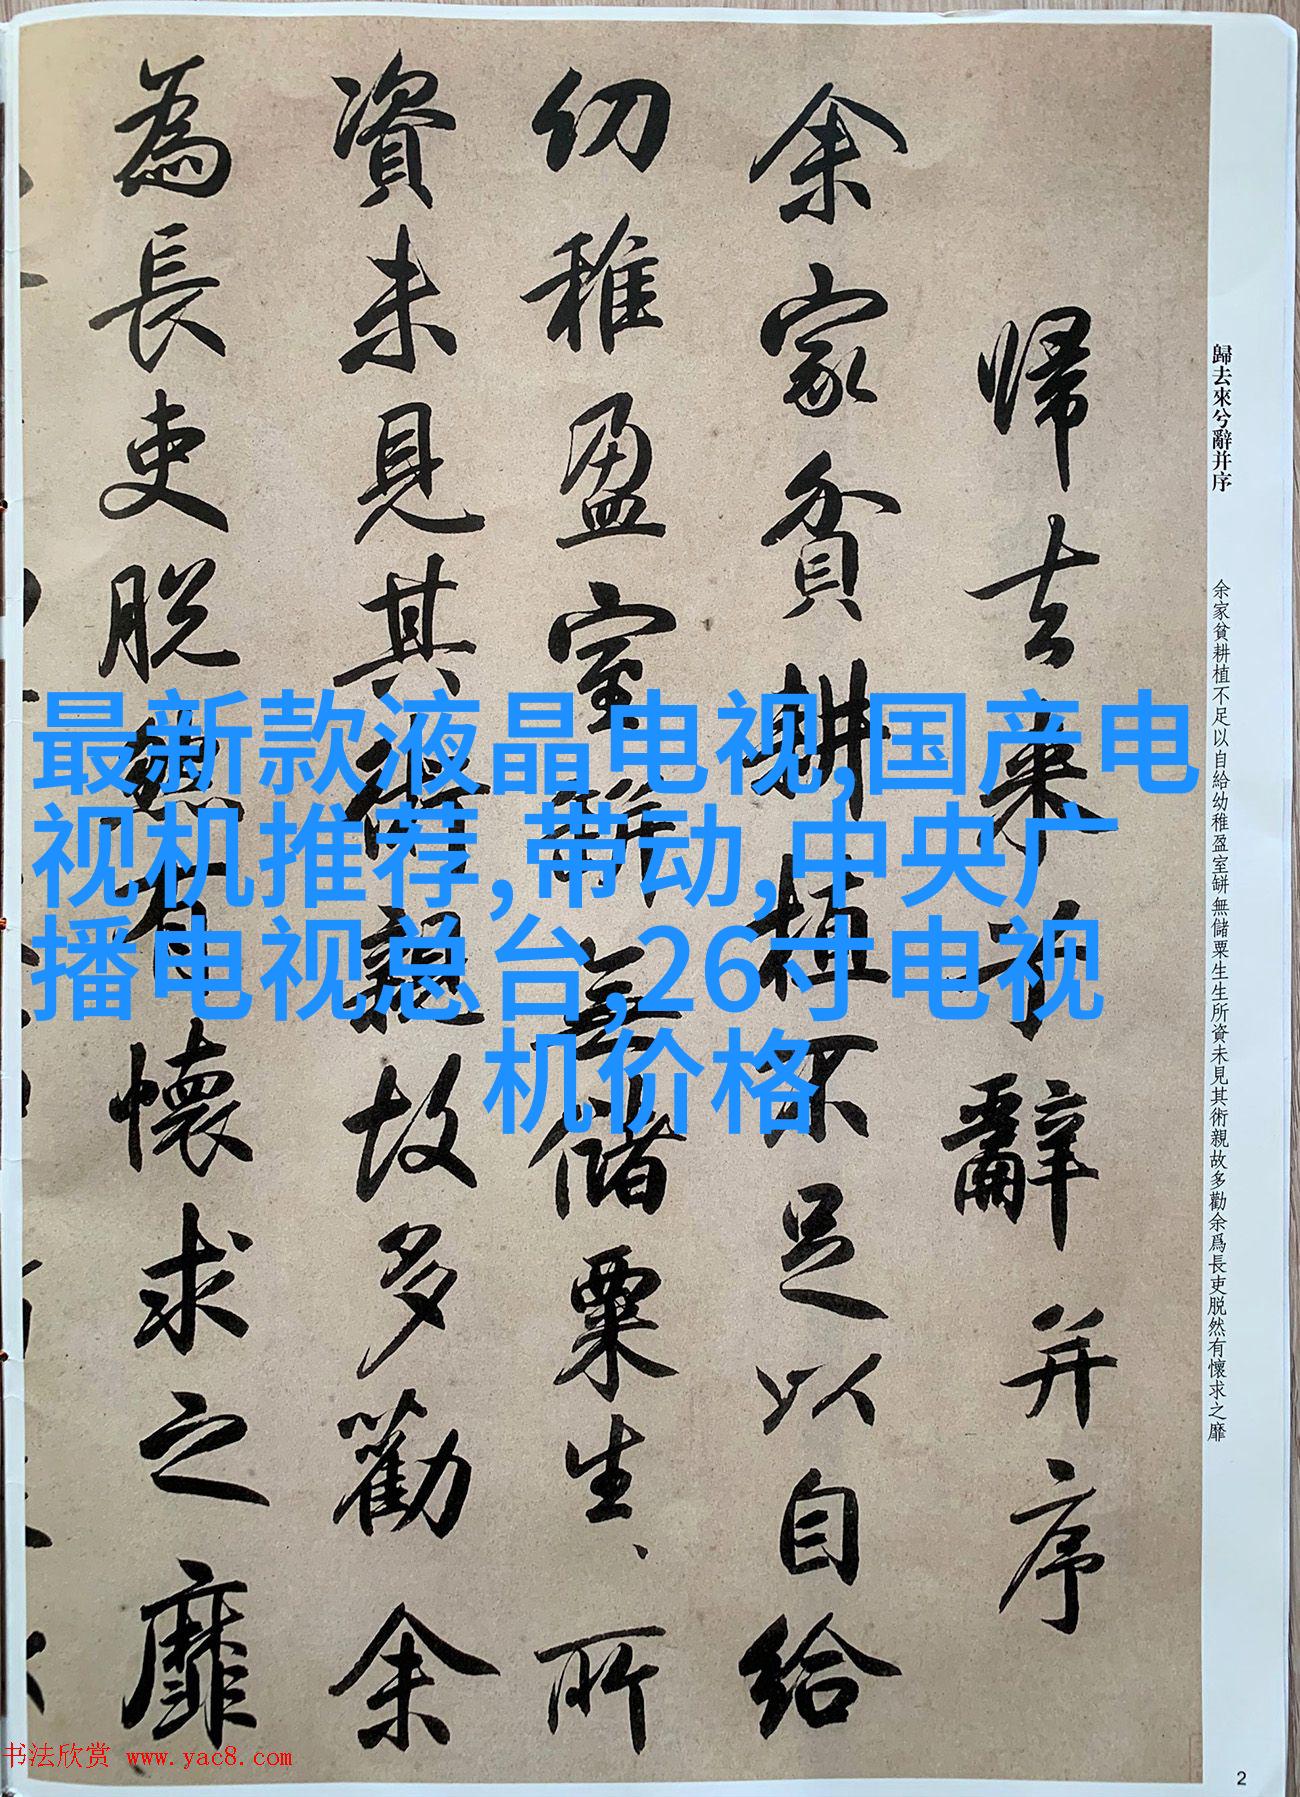 歸去來兮辭并序
余家貧耕植不足以自給幼稚盈室缾無儲粟生生所資未見其術親故多勸余爲長吏脱然有懷求之靡
歸去來兮辭并序
余家貧耕植不足以自給
幼稚盈室缾無儲粟生、所
資未見其術親故多勸余
為長吏脱然有懷求之靡
最新款液晶电视,国产电
视机推荐,带动,中央广
播电视总台,26寸电视
机价格
书法欣赏 www.yac8.com
2